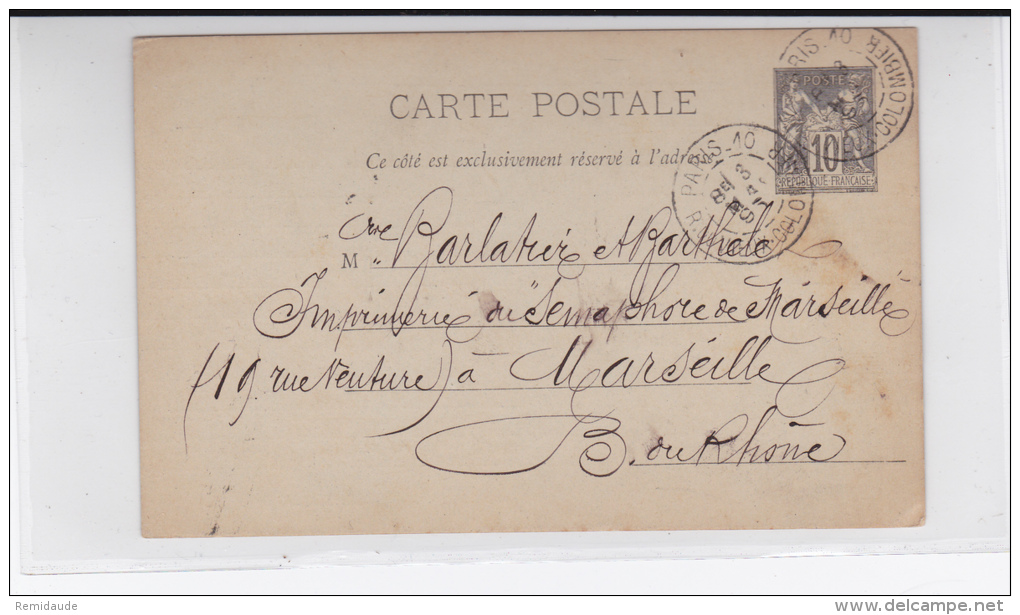 CARTE POSTALE
Ce côté est exclusivement réservé à l'adresse
POSTES
10
REPUBLIQUE FRANÇAISE
PARIS_10 COLOMBIER
PARIS_10 COLOMBIER
M Barlatier et Barthelet
Imprimerie du Semaphore de Marseille
(19 rue Venture) à Marseille
B. du Rhône
Remidaude
www.delcampe.net